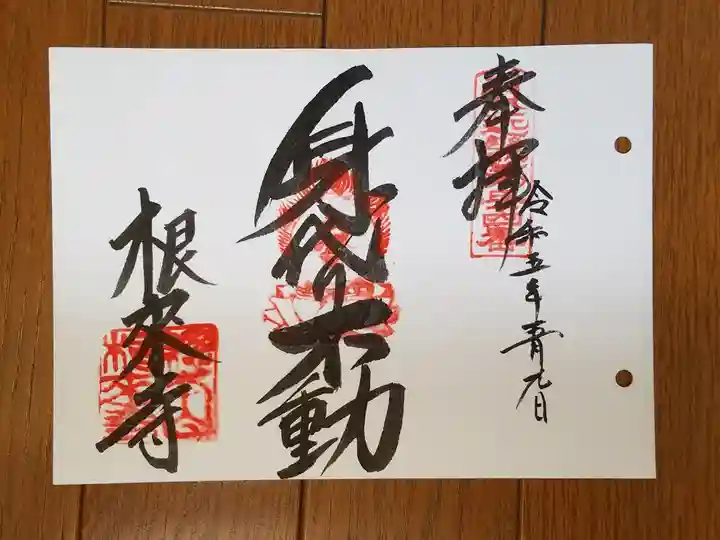 奉拝
令和五年一月九日
身代り不動
根來寺